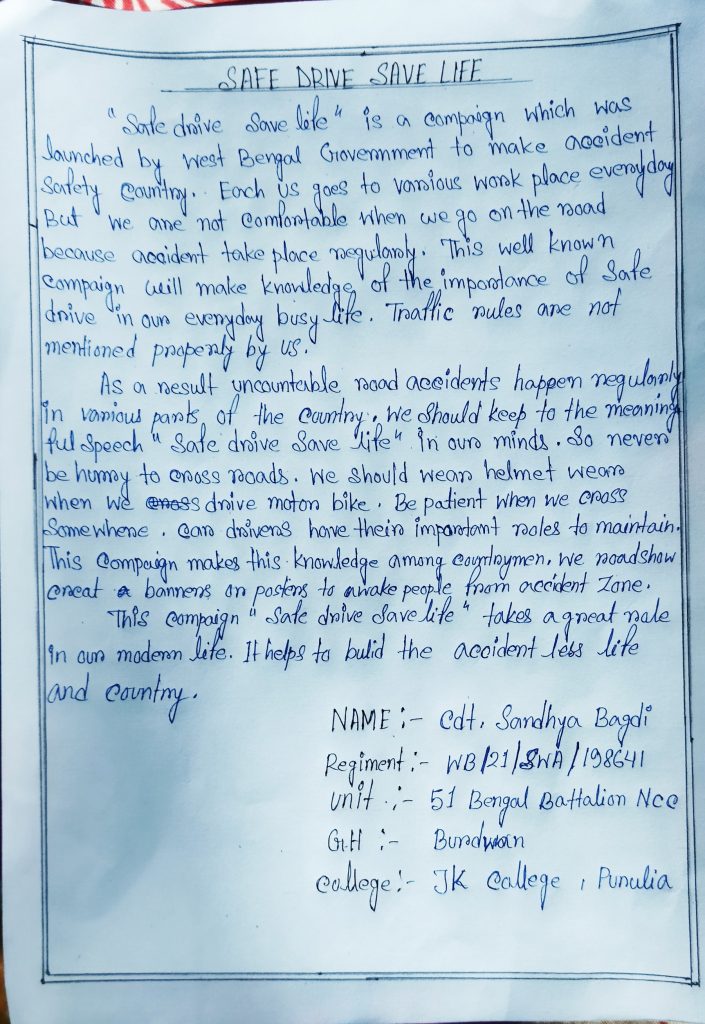 SAFE DRIVE SAVE LIFE
"Safe drive Save life" is a campaign which was
launched by West Bengal Government to make accident
Safety Country. Each us goes to various work place everyday
But we are not Comfortable when we go on the road
because accident take place regularly. This well known
Campaign will make knowledge of the importance of Safe
drive in our everyday busy life. Traffic rules are not
mentioned properly by us.
As a result uncountable road accidents happen regularly
in various parts of the Country. We should keep to the meaning
ful Speech "Safe drive Save life" in our minds. So never
be hurry to cross roads. We should wear helmet wear
when we cross drive motor bike. Be patient when we cross
Somewhere. Car drivers have their important roles to maintain.
This Campaign makes this knowledge among countrymen. We roadshow
creat a banners or posters to awake people from accident Zone.
This campaign "Safe drive Save life" takes a great role
in our modern life. It helps to bulid the accident less life
and country.
NAME :- Cdt. Sandhya Bagdi
Regiment :- WB/21/SWA/198641
Unit :- 51 Bengal Battalion Ncc
G.H :- Burdwan
College :- JK College, Purulia